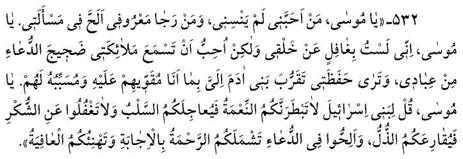 ۵۳۲ـ «يٰا مُوسٰى، مَنْ اَحَبَّنى لَمْ يَنْسِنى، وَمَنْ رَجٰا مَعْرُوفى اَلَحَّ فى مَسْأَلَتى. يٰا
مُوسٰى، اِنّى لَسْتُ بِغٰافِلٍ عَنْ خَلْقى وَلٰكِنْ اُحِبُّ اَنْ تَسْمَعَ مَلاٰئِكَتى ضَجيجَ الدُّعٰاءِ
مِنْ عِبٰادى، وَتَرٰى حَفَظَتى تَقَرُّبَ بَنى اٰدَمَ اِلَىَّ بِمٰا اَنَا مُقَوّيهِمْ عَلَيْهِ وَمُسَبِّبُهُ لَهُمْ. يٰا
مُوسٰى، قُلْ لِبَنى اِسْرٰائيلَ لاٰتَبْطَرَنَّكُمُ النِّعْمَةُ فَيُعٰاجِلَكُمُ السَّلْبُ وَلاٰتَغْفُلُوا عَنِ الشُّكْرِ
فَيُقٰارِعَكُمُ الذُّلُّ، وَاَلِحُّوا فِى الدُّعٰاءِ تَشْمَلْكُمُ الرَّحْمَةُ بِالْاِجٰابَةِ وَتَهْنِئْكُمُ الْعٰافِيَةُ».